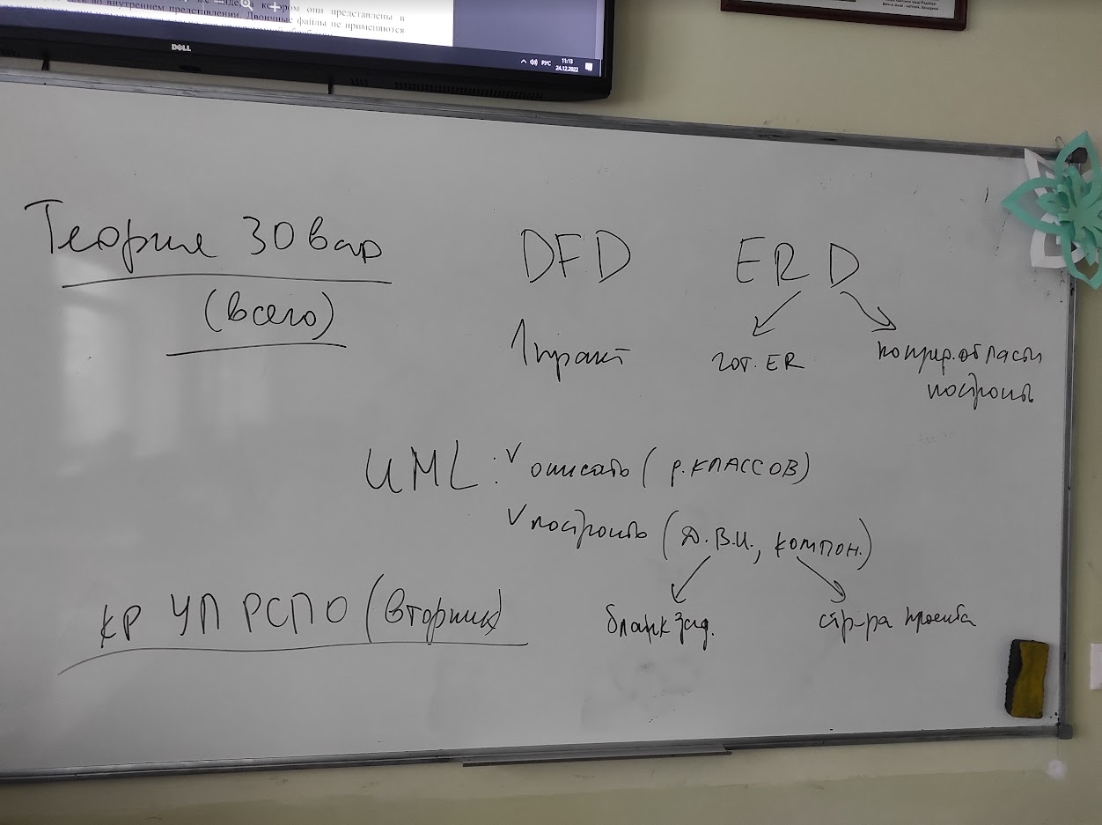 во внутреннем представлении. Двоичные файлы не применяются
DELL
РУС
11:13
24.12.2022
Теория 30 вар
(всего)
DFD
ERD
1 практ
гот. ER
по пр. области
построить
UML:
✓ описать (р. КЛАССОВ)
✓ построить (Д.В.И., компон.)
бланк зад.
стр-ра проекта
КР УП РСПО (Вторник)